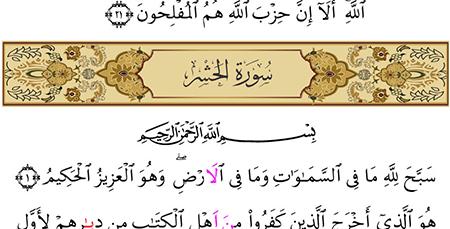 اللَّهِ ۚ أَلَآ إِنَّ حِزْبَ اللَّهِ هُمُ الْمُفْلِحُونَ ﴿٢١﴾
سُورَةُ الْحَشْرِ
بِسْمِ اللَّهِ الرَّحْمَٰنِ الرَّحِيمِ
سَبَّحَ لِلَّهِ مَا فِى السَّمَٰوَاتِ وَمَا فِى الْاَرْضِ ۖ وَهُوَ الْعَزِيزُ الْحَكِيمُ ﴿١﴾
هُوَ الَّذِىٓ أَخْرَجَ الَّذِينَ كَفَرُوا مِنَ اَهْلِ الْكِتَٰبِ مِن دِيَٰرِهِمْ لِأَوَّلِ